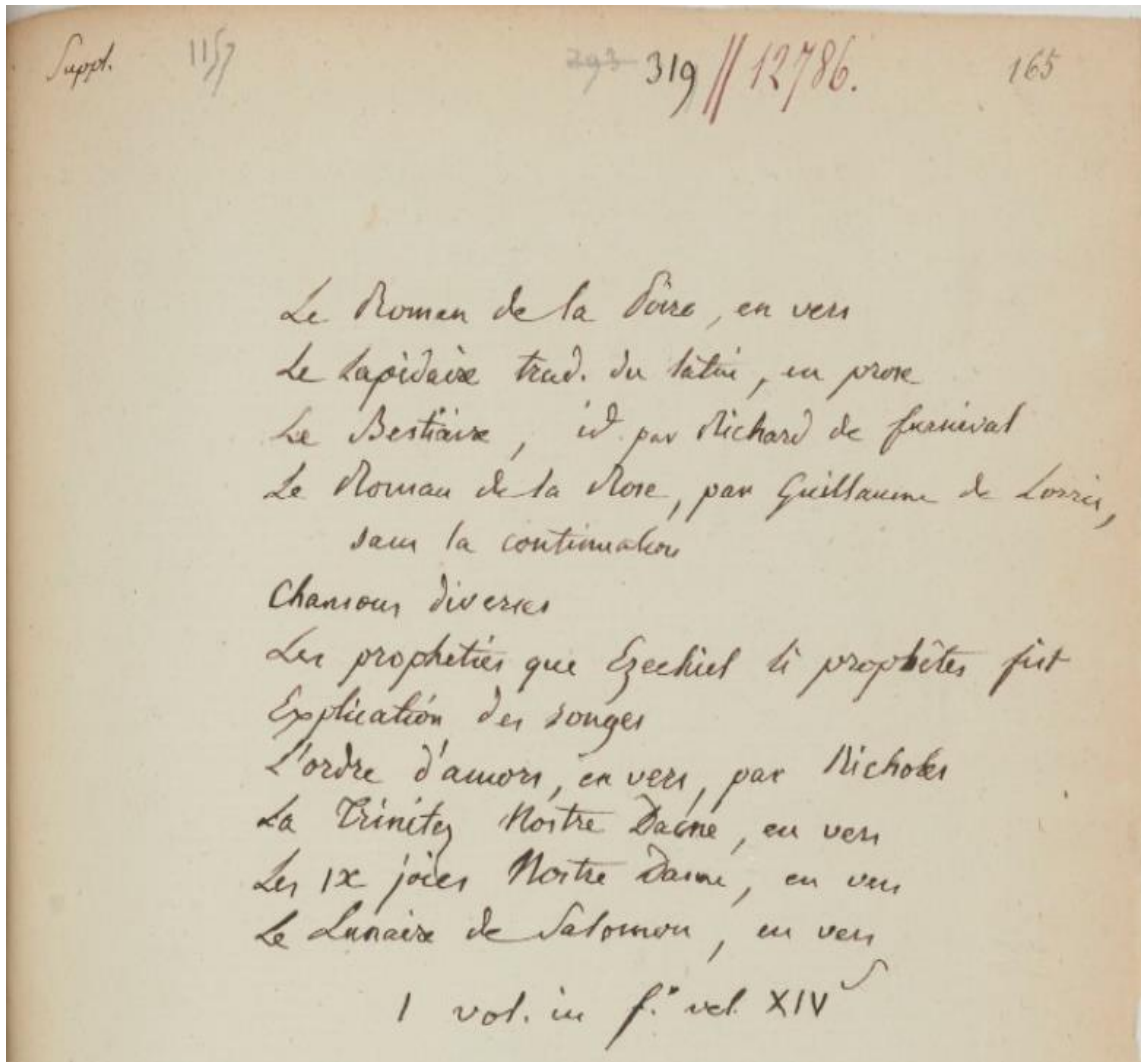 Suppl. 1157 293 319 // 12786. 165
Le Roman de la Poire, en vers
Le Lapidaire trad. du latin, en prose
Le Bestiaire, id par Richard de furnival
Le Roman de la Rose, par Guillaume de Lorris,
sans la continuation
Chansons diverses
Les propheties que Ezechiel li prophètes fist
Explication des songes
L'ordre d'amors, en vers, par Nicholes
La Trinitez Nostre Dame, en vers
Les IX joies Nostre Dame, en vers
Le Lunaire de Salomon, en vers
1 vol. in f.° vel. XIV S